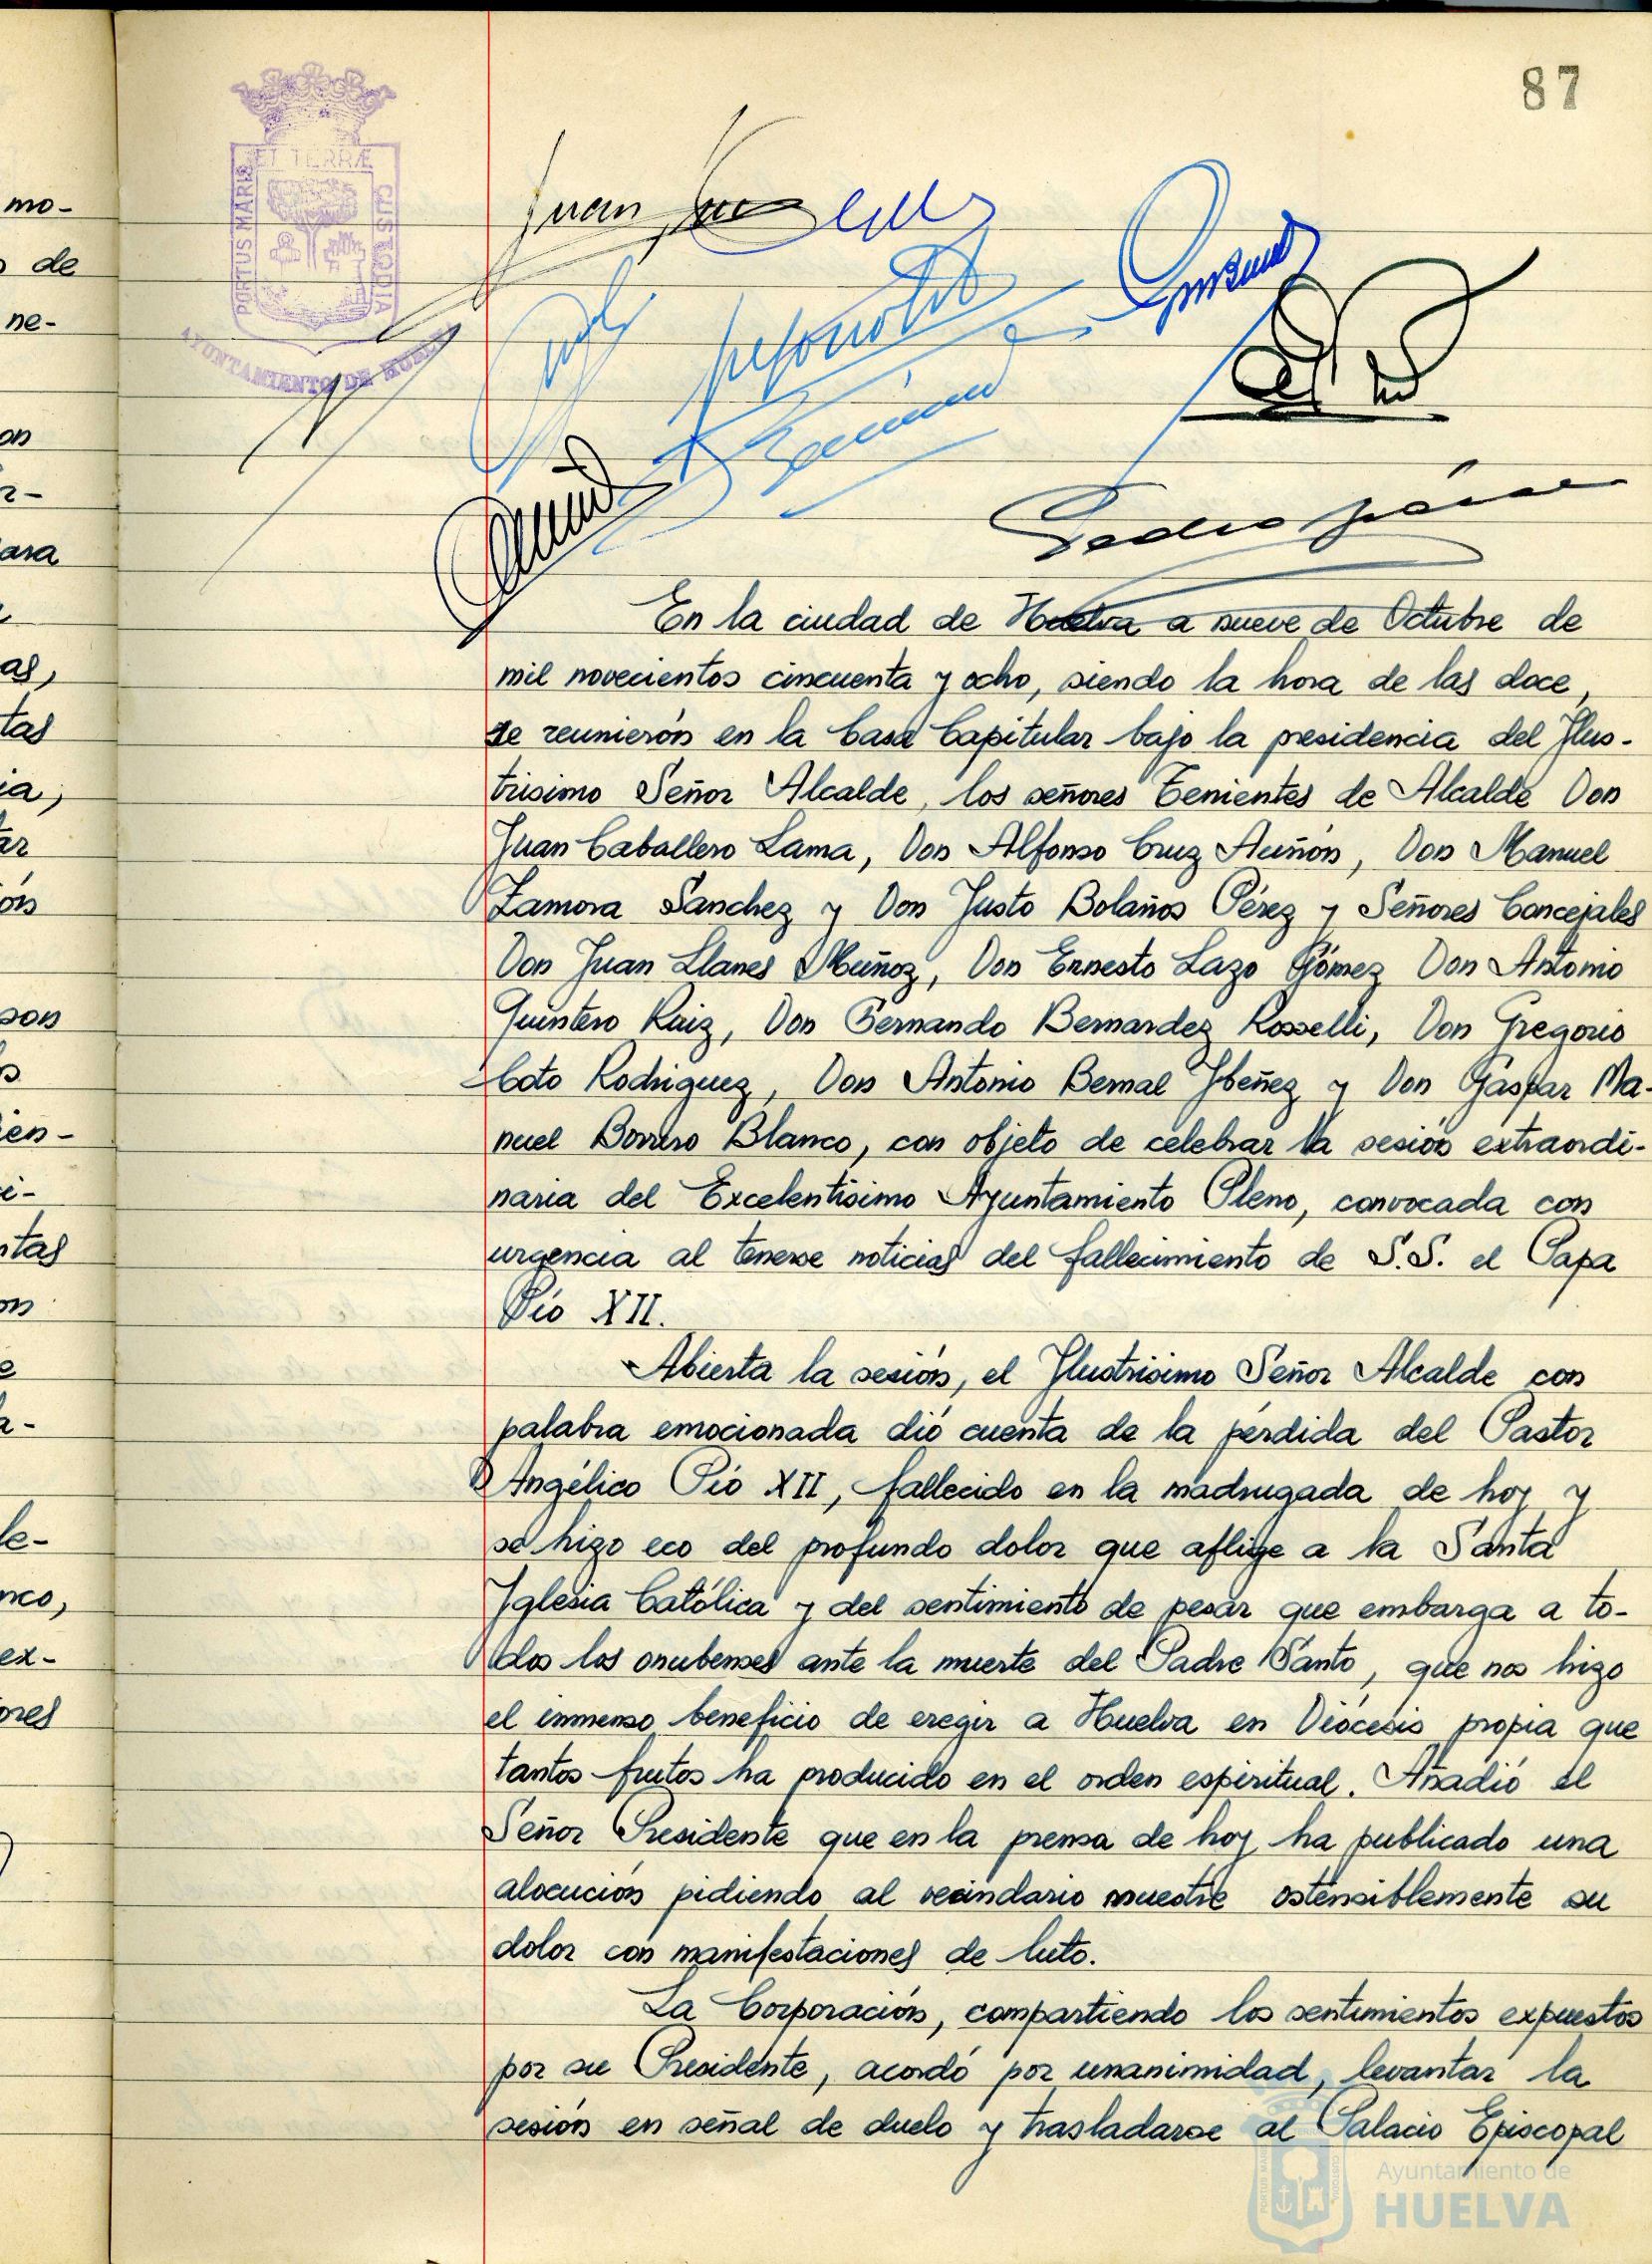 87
ET TERRÆ
PORTUS MARIS
CUSTODIA
AYUNTAMIENTO DE HUELVA
Juan
Pedro García
mo-
de
ne-
on
r-
ara
as,
tas
ia,
ar
ón
son
ien-
i-
ntas
on
e
a-
le-
nco,
ex-
ores
En la ciudad de Huelva a nueve de Octubre de
mil novecientos cincuenta y ocho, siendo la hora de las doce,
se reunierón en la Casa Capitular bajo la presidencia del Ilus-
trisimo Señor Alcalde, los señores Tenientes de Alcalde Don
Juan Caballero Lama, Don Alfonso Cruz Auñón, Don Manuel
Zamora Sanchez y Don Justo Bolaños Pérez y Señores Concejales
Don Juan Llanes Muñoz, Don Ernesto Lazo Gómez Don Antonio
Quintero Ruiz, Don Fernando Bernardez Rosselli, Don Gregorio
Coto Rodriguez, Don Antonio Bernal Ybeñez y Don Gaspar Ma-
nuel Borrero Blanco, con objeto de celebrar la sesión extraordi-
naria del Excelentisimo Ayuntamiento Pleno, convocada con
urgencia al tenerse noticias del fallecimiento de S.S. el Papa
Pío XII.
Abierta la sesión, el Ilustrisimo Señor Alcalde con
palabra emocionada dió cuenta de la pérdida del Pastor
Angélico Pío XII, fallecido en la madrugada de hoy y
se hizo eco del profundo dolor que aflige a la Santa
Iglesia Católica y del sentimiento de pesar que embarga a to-
dos los onubenses ante la muerte del Padre Santo, que nos hizo
el inmenso beneficio de eregir a Huelva en Diócesis propia que
tantos frutos ha producido en el orden espiritual. Añadió el
Señor Presidente que en la prensa de hoy ha publicado una
alocución pidiendo al vecindario muestre ostensiblemente su
dolor con manifestaciones de luto.
La Corporación, compartiendo los sentimientos expuestos
por su Presidente, acordó por unanimidad, levantar la
sesión en señal de duelo y trasladarse al Palacio Episcopal
Ayuntamiento de
HUELVA